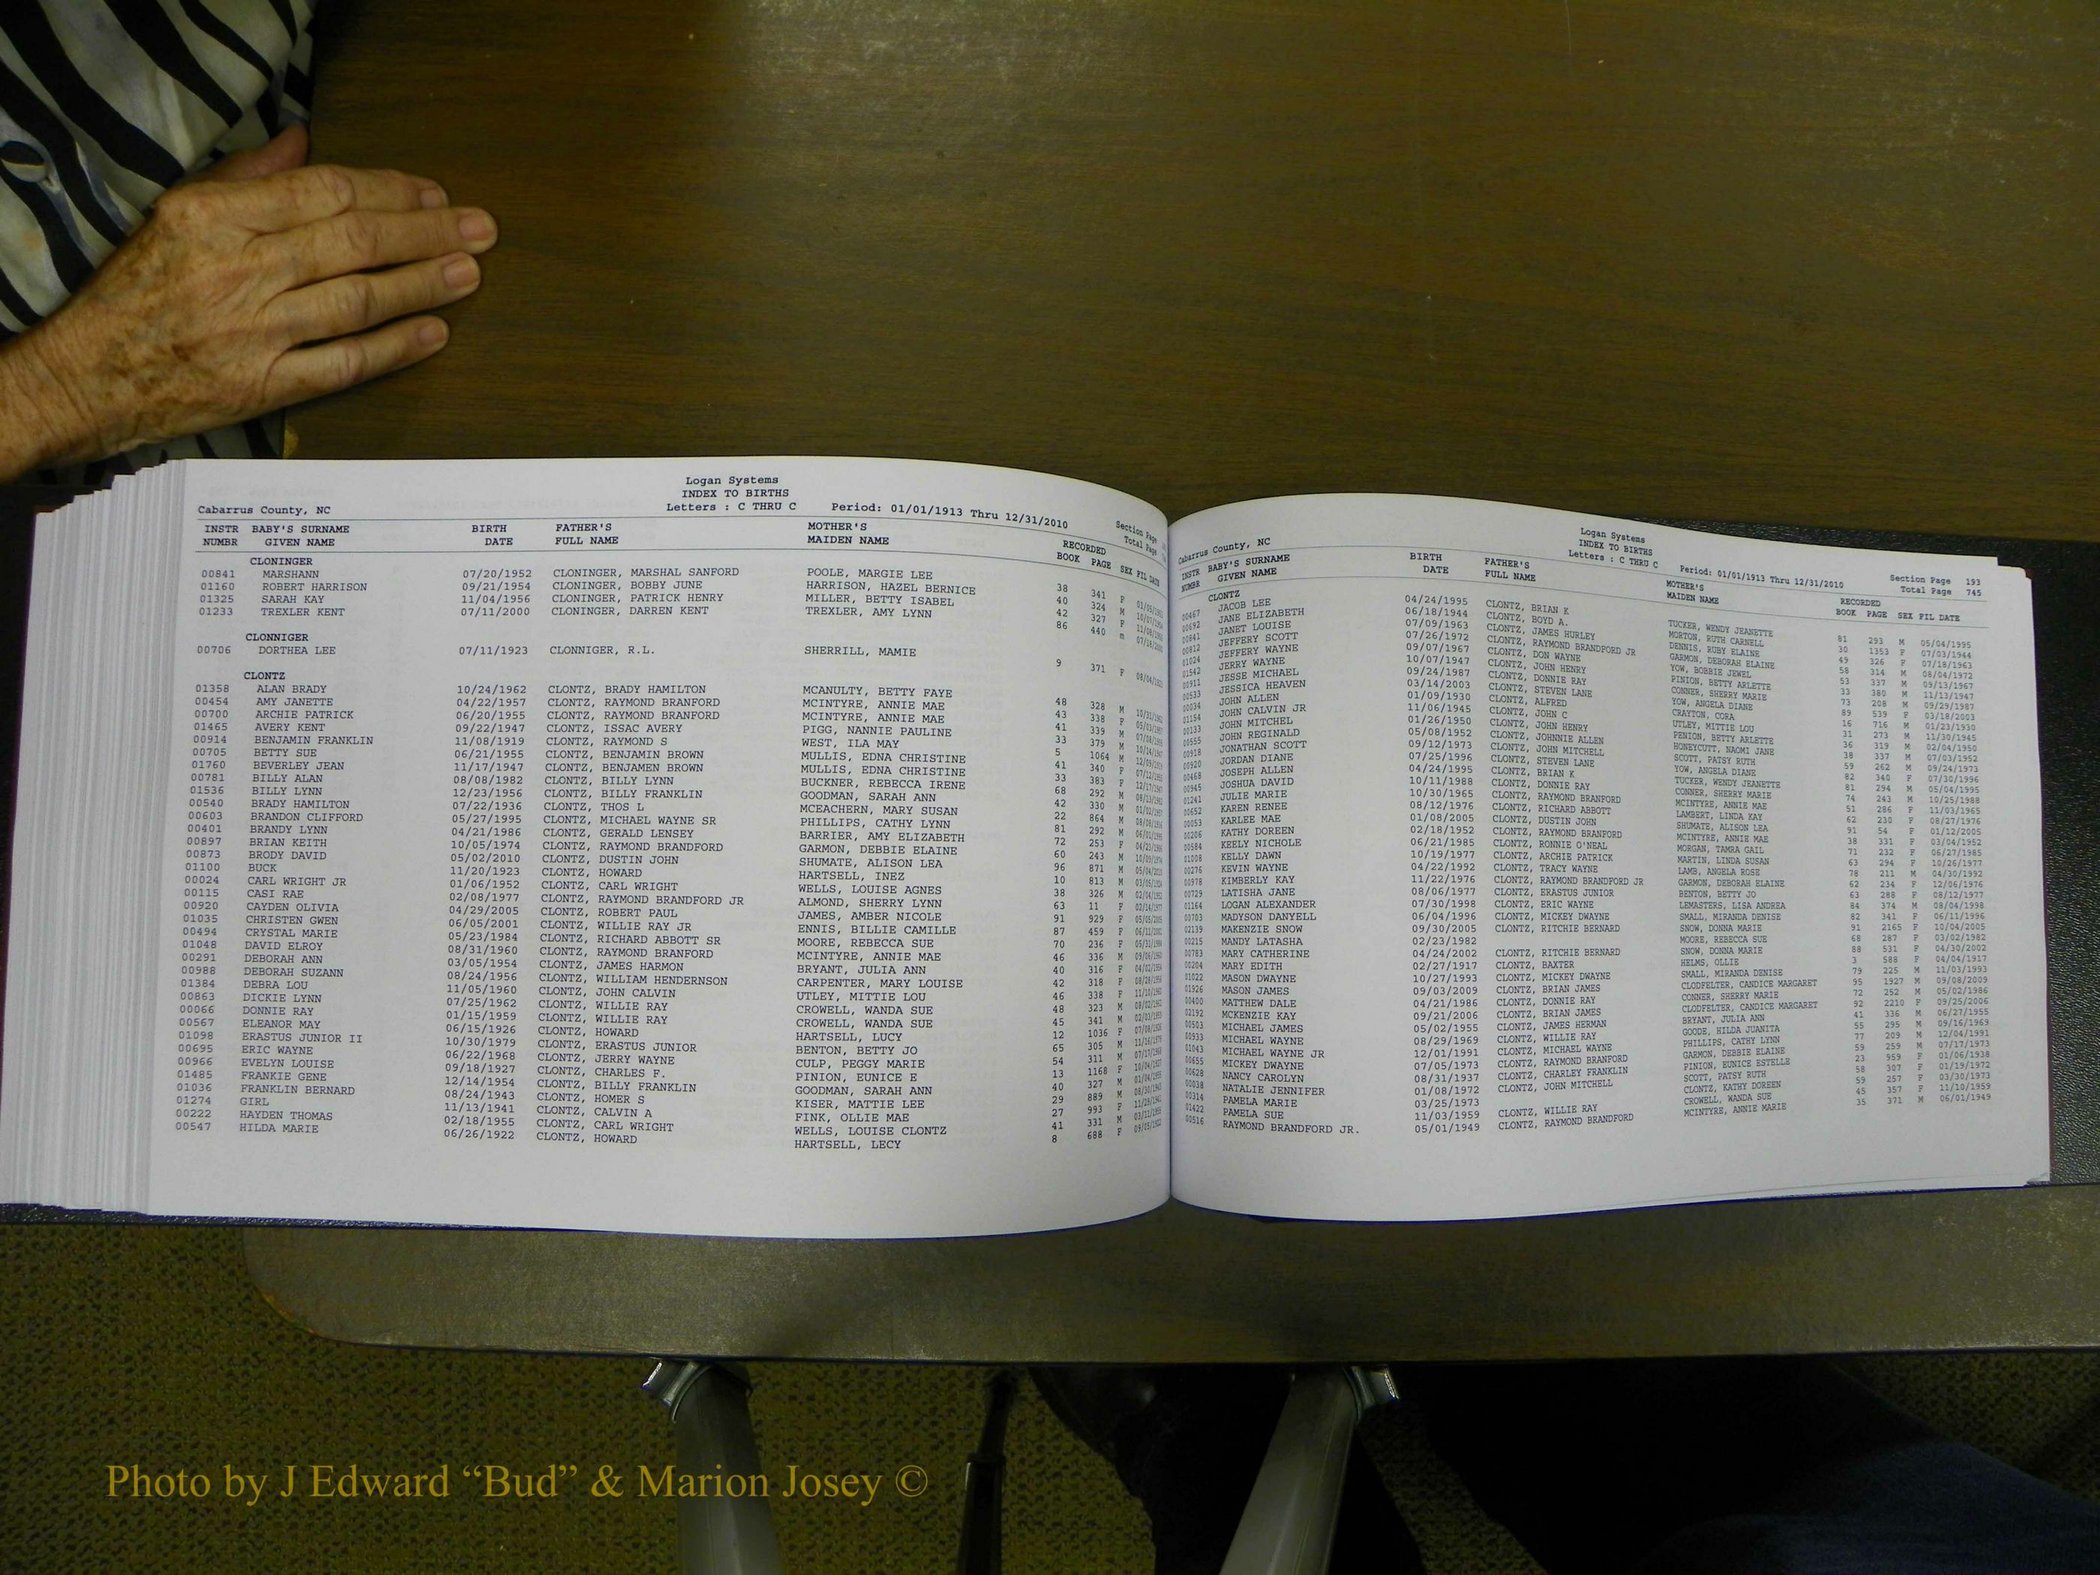 Logan Systems
INDEX TO BIRTHS
Cabarrus County, NC Letters : C THRU C Period: 01/01/1913 Thru 12/31/2010 Section Page
Total Page
INSTR BABY'S SURNAME BIRTH FATHER'S MOTHER'S RECORDED
NUMBR GIVEN NAME DATE FULL NAME MAIDEN NAME BOOK PAGE SEX FIL DATE
CLONINGER
00841 MARSHANN 07/20/1952 CLONINGER, MARSHAL SANFORD POOLE, MARGIE LEE 38 341 F
01160 ROBERT HARRISON 09/21/1954 CLONINGER, BOBBY JUNE HARRISON, HAZEL BERNICE 40 324 M
01325 SARAH KAY 11/04/1956 CLONINGER, PATRICK HENRY MILLER, BETTY ISABEL 42 327 F
01233 TREXLER KENT 07/11/2000 CLONINGER, DARREN KENT TREXLER, AMY LYNN 86 440 m
CLONNIGER
00706 DORTHEA LEE 07/11/1923 CLONNIGER, R.L. SHERRILL, MAMIE 9 371 F
CLONTZ
01358 ALAN BRADY 10/24/1962 CLONTZ, BRADY HAMILTON MCANULTY, BETTY FAYE 48 328 M
00454 AMY JANETTE 04/22/1957 CLONTZ, RAYMOND BRANFORD MCINTYRE, ANNIE MAE 43 338 F
00700 ARCHIE PATRICK 06/20/1955 CLONTZ, RAYMOND BRANFORD MCINTYRE, ANNIE MAE 41 339 M
01465 AVERY KENT 09/22/1947 CLONTZ, ISSAC AVERY PIGG, NANNIE PAULINE 33 379 M
00914 BENJAMIN FRANKLIN 11/08/1919 CLONTZ, RAYMOND S WEST, ILA MAY 5 1064 M
00705 BETTY SUE 06/21/1955 CLONTZ, BENJAMIN BROWN MULLIS, EDNA CHRISTINE 41 340 F
01760 BEVERLEY JEAN 11/17/1947 CLONTZ, BENJAMEN BROWN MULLIS, EDNA CHRISTINE 33 383 F
00781 BILLY ALAN 08/08/1982 CLONTZ, BILLY LYNN BUCKNER, REBECCA IRENE 68 292 M
01536 BILLY LYNN 12/23/1956 CLONTZ, BILLY FRANKLIN GOODMAN, SARAH ANN 42 330 M
00540 BRADY HAMILTON 07/22/1936 CLONTZ, THOS L MCEACHERN, MARY SUSAN 22 864 M
00603 BRANDON CLIFFORD 05/27/1995 CLONTZ, MICHAEL WAYNE SR PHILLIPS, CATHY LYNN 81 292 M
00401 BRANDY LYNN 04/21/1986 CLONTZ, GERALD LENSEY BARRIER, AMY ELIZABETH 72 253 F
00897 BRIAN KEITH 10/05/1974 CLONTZ, RAYMOND BRANDFORD GARMON, DEBBIE ELAINE 60 243 M
00873 BRODY DAVID 05/02/2010 CLONTZ, DUSTIN JOHN SHUMATE, ALISON LEA 96 871 M
01100 BUCK 11/20/1923 CLONTZ, HOWARD HARTSELL, INEZ 10 813 M
00024 CARL WRIGHT JR 01/06/1952 CLONTZ, CARL WRIGHT WELLS, LOUISE AGNES 38 326 M
00115 CASI RAE 02/08/1977 CLONTZ, RAYMOND BRANDFORD JR ALMOND, SHERRY LYNN 63 11 F
00920 CAYDEN OLIVIA 04/29/2005 CLONTZ, ROBERT PAUL JAMES, AMBER NICOLE 91 929 F
01035 CHRISTEN GWEN 06/05/2001 CLONTZ, WILLIE RAY JR ENNIS, BILLIE CAMILLE 87 459 F
00494 CRYSTAL MARIE 05/23/1984 CLONTZ, RICHARD ABBOTT SR MOORE, REBECCA SUE 70 236 F
01048 DAVID ELROY 08/31/1960 CLONTZ, RAYMOND BRANFORD MCINTYRE, ANNIE MAE 46 336 M
00291 DEBORAH ANN 03/05/1954 CLONTZ, JAMES HARMON BRYANT, JULIA ANN 40 316 F
00988 DEBORAH SUZANN 08/24/1956 CLONTZ, WILLIAM HENDERNSON CARPENTER, MARY LOUISE 42 318 F
01384 DEBRA LOU 11/05/1960 CLONTZ, JOHN CALVIN UTLEY, MITTIE LOU 46 338 F
00863 DICKIE LYNN 07/25/1962 CLONTZ, WILLIE RAY CROWELL, WANDA SUE 48 323 M
00066 DONNIE RAY 01/15/1959 CLONTZ, WILLIE RAY CROWELL, WANDA SUE 45 341 M
00567 ELEANOR MAY 06/15/1926 CLONTZ, HOWARD HARTSELL, LUCY 12 1036 F
01098 ERASTUS JUNIOR II 10/30/1979 CLONTZ, ERASTUS JUNIOR BENTON, BETTY JO 65 305 M
00695 ERIC WAYNE 06/22/1968 CLONTZ, JERRY WAYNE CULP, PEGGY MARIE 54 311 M
00966 EVELYN LOUISE 09/18/1927 CLONTZ, CHARLES F. PINION, EUNICE E 13 1168 F
01485 FRANKIE GENE 12/14/1954 CLONTZ, BILLY FRANKLIN GOODMAN, SARAH ANN 40 327 M
01036 FRANKLIN BERNARD 08/24/1943 CLONTZ, HOMER S KISER, MATTIE LEE 29 889 M
01274 GIRL 11/13/1941 CLONTZ, CALVIN A FINK, OLLIE MAE 27 993 F
00222 HAYDEN THOMAS 02/18/1955 CLONTZ, CARL WRIGHT WELLS, LOUISE CLONTZ 41 331 M
00547 HILDA MARIE 06/26/1922 CLONTZ, HOWARD HARTSELL, LECY 8 688 F
Logan Systems
INDEX TO BIRTHS
Cabarrus County, NC Letters : C THRU C Period: 01/01/1913 Thru 12/31/2010 Section Page 193
Total Page 745
INSTR BABY'S SURNAME BIRTH FATHER'S MOTHER'S RECORDED
NUMBR GIVEN NAME DATE FULL NAME MAIDEN NAME BOOK PAGE SEX FIL DATE
CLONTZ
00467 JACOB LEE 04/24/1995 CLONTZ, BRIAN K TUCKER, WENDY JEANETTE 81 293 M 05/04/1995
00692 JANE ELIZABETH 06/18/1944 CLONTZ, BOYD A. MORTON, RUTH CARNELL 30 1353 F 07/03/1944
00841 JANET LOUISE 07/09/1963 CLONTZ, JAMES HURLEY DENNIS, RUBY ELAINE 49 326 F 07/18/1963
00812 JEFFERY SCOTT 07/26/1972 CLONTZ, RAYMOND BRANDFORD JR GARMON, DEBORAH ELAINE 58 314 M 08/04/1972
01024 JEFFERY WAYNE 09/07/1967 CLONTZ, DON WAYNE YOW, BOBBIE JEWEL 53 337 M 09/13/1967
01542 JERRY WAYNE 10/07/1947 CLONTZ, JOHN HENRY PINION, BETTY ARLETTE 33 380 M 11/13/1947
00911 JESSE MICHAEL 09/24/1987 CLONTZ, DONNIE RAY CONNER, SHERRY MARIE 73 208 M 09/29/1987
00533 JESSICA HEAVEN 03/14/2003 CLONTZ, STEVEN LANE YOW, ANGELA DIANE 89 539 F 03/18/2003
00034 JOHN ALLEN 01/09/1930 CLONTZ, ALFRED CRAYTON, CORA 16 716 M 01/23/1930
01154 JOHN CALVIN JR 11/06/1945 CLONTZ, JOHN C UTLEY, MITTIE LOU 31 273 M 11/30/1945
00133 JOHN MITCHEL 01/26/1950 CLONTZ, JOHN HENRY PENION, BETTY ARLETTE 36 319 M 02/04/1950
00555 JOHN REGINALD 05/08/1952 CLONTZ, JOHNNIE ALLEN HONEYCUTT, NAOMI JANE 38 337 M 07/03/1952
00918 JONATHAN SCOTT 09/12/1973 CLONTZ, JOHN MITCHELL SCOTT, PATSY RUTH 59 262 M 09/24/1973
00920 JORDAN DIANE 07/25/1996 CLONTZ, STEVEN LANE YOW, ANGELA DIANE 82 340 F 07/30/1996
00468 JOSEPH ALLEN 04/24/1995 CLONTZ, BRIAN K TUCKER, WENDY JEANETTE 81 294 M 05/04/1995
00945 JOSHUA DAVID 10/11/1988 CLONTZ, DONNIE RAY CONNER, SHERRY MARIE 74 243 M 10/25/1988
01241 JULIE MARIE 10/30/1965 CLONTZ, RAYMOND BRANFORD MCINTYRE, ANNIE MAE 51 286 F 11/03/1965
00652 KAREN RENEE 08/12/1976 CLONTZ, RICHARD ABBOTT LAMBERT, LINDA KAY 62 230 F 08/27/1976
00053 KARLEE MAE 01/08/2005 CLONTZ, DUSTIN JOHN SHUMATE, ALISON LEA 91 54 F 01/12/2005
00206 KATHY DOREEN 02/18/1952 CLONTZ, RAYMOND BRANFORD MCINTYRE, ANNIE MAE 38 331 F 03/04/1952
00584 KEELY NICHOLE 06/21/1985 CLONTZ, RONNIE O'NEAL MORGAN, TAMRA GAIL 71 232 F 06/27/1985
01008 KELLY DAWN 10/19/1977 CLONTZ, ARCHIE PATRICK MARTIN, LINDA SUSAN 63 294 F 10/26/1977
00276 KEVIN WAYNE 04/22/1992 CLONTZ, TRACY WAYNE LAMB, ANGELA ROSE 78 211 M 04/30/1992
00978 KIMBERLY KAY 11/22/1976 CLONTZ, RAYMOND BRANDFORD JR GARMON, DEBORAH ELAINE 62 234 F 12/06/1976
00729 LATISHA JANE 08/06/1977 CLONTZ, ERASTUS JUNIOR BENTON, BETTY JO 63 288 F 08/12/1977
01164 LOGAN ALEXANDER 07/30/1998 CLONTZ, ERIC WAYNE LEMASTERS, LISA ANDREA 84 374 M 08/04/1998
00703 MADYSON DANYELL 06/04/1996 CLONTZ, MICKEY DWAYNE SMALL, MIRANDA DENISE 82 341 F 06/11/1996
02139 MAKENZIE SNOW 09/30/2005 CLONTZ, RITCHIE BERNARD SNOW, DONNA MARIE 91 2165 F 10/04/2005
00215 MANDY LATASHA 02/23/1982 MOORE, REBECCA SUE 68 287 F 03/02/1982
00783 MARY CATHERINE 04/24/2002 CLONTZ, RITCHIE BERNARD SNOW, DONNA MARIE 88 531 F 04/30/2002
00204 MARY EDITH 02/27/1917 CLONTZ, BAXTER HELMS, OLLIE 3 588 F 04/04/1917
01022 MASON DWAYNE 10/27/1993 CLONTZ, MICKEY DWAYNE SMALL, MIRANDA DENISE 79 225 M 11/03/1993
01926 MASON JAMES 09/03/2009 CLONTZ, BRIAN JAMES CLODFELTER, CANDICE MARGARET 95 1927 M 09/08/2009
00400 MATTHEW DALE 04/21/1986 CLONTZ, DONNIE RAY CONNER, SHERRY MARIE 72 252 M 05/02/1986
02192 MCKENZIE KAY 09/21/2006 CLONTZ, BRIAN JAMES CLODFELTER, CANDICE MARGARET 92 2210 F 09/25/2006
00503 MICHAEL JAMES 05/02/1955 CLONTZ, JAMES HERMAN BRYANT, JULIA ANN 41 336 M 06/27/1955
00933 MICHAEL WAYNE 08/29/1969 CLONTZ, WILLIE RAY GOODE, HILDA JUANITA 55 295 M 09/16/1969
01043 MICHAEL WAYNE JR 12/01/1991 CLONTZ, MICHAEL WAYNE PHILLIPS, CATHY LYNN 77 209 M 12/04/1991
00655 MICKEY DWAYNE 07/05/1973 CLONTZ, RAYMOND BRANFORD GARMON, DEBBIE ELAINE 59 259 M 07/17/1973
00628 NANCY CAROLYN 08/31/1937 CLONTZ, CHARLEY FRANKLIN PINION, EUNICE ESTELLE 23 959 F 01/06/1938
00038 NATALIE JENNIFER 01/08/1972 CLONTZ, JOHN MITCHELL SCOTT, PATSY RUTH 58 307 F 01/19/1972
00314 PAMELA MARIE 03/25/1973 CLONTZ, KATHY DOREEN 59 257 F 03/30/1973
01422 PAMELA SUE 11/03/1959 CLONTZ, WILLIE RAY CROWELL, WANDA SUE 45 357 F 11/10/1959
00516 RAYMOND BRANDFORD JR. 05/01/1949 CLONTZ, RAYMOND BRANDFORD MCINTYRE, ANNIE MARIE 35 371 M 06/01/1949
Photo by J Edward “Bud” & Marion Josey ©